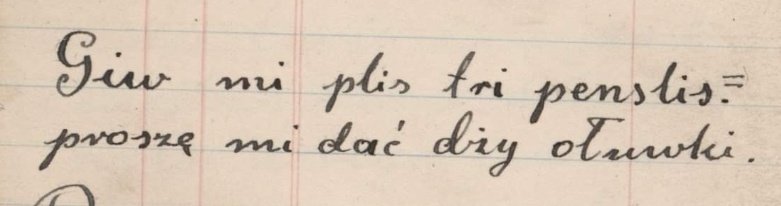 Giw mi plis tri penslis.=
proszę mi dać dży ołuwki.